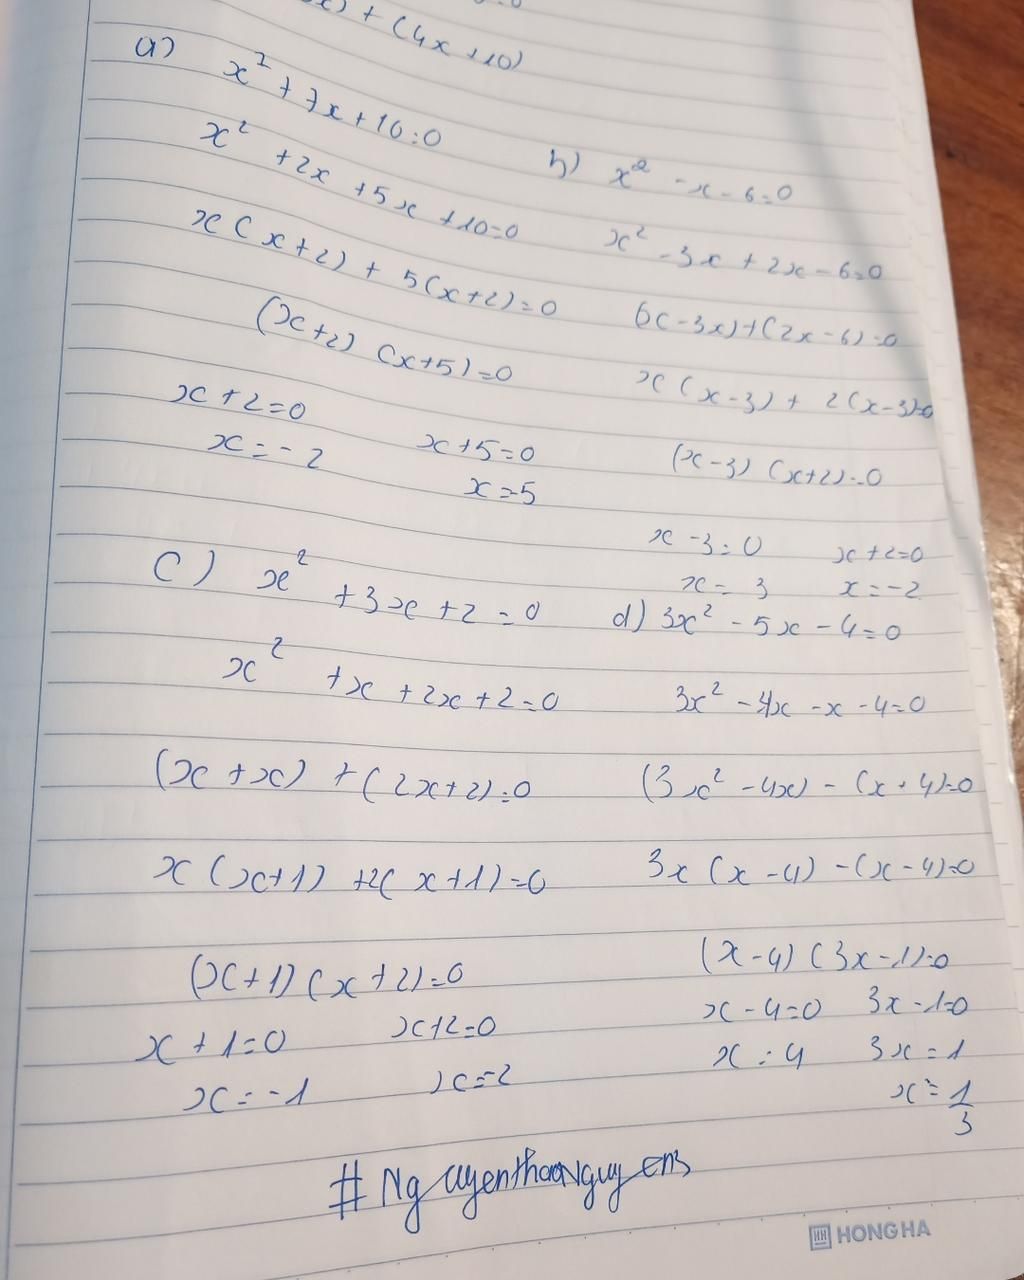 x) + (4x+10)
a) x² + 7x + 10 = 0
x² + 2x + 5x + 10 = 0
x(x+2) + 5(x+2) = 0
(x+2) (x+5) = 0
x + 2 = 0
x = -2
x + 5 = 0
x = -5
b) x² - x - 6 = 0
x² - 3x + 2x - 6 = 0
(x - 3x) + (2x - 6) = 0
x(x - 3) + 2(x - 3) = 0
(x - 3) (x + 2) = 0
x - 3 = 0
x = 3
x + 2 = 0
x = -2
c) x² + 3x + 2 = 0
x² + x + 2x + 2 = 0
(x + x) + (2x + 2) = 0
x(x+1) + 2(x+1) = 0
(x+1) (x+2) = 0
x + 1 = 0
x = -1
x + 2 = 0
x = -2
d) 3x² - 5x - 4 = 0
3x² - 4x - x - 4 = 0
(3x² - 4x) - (x + 4) = 0
3x (x - 4) - (x - 4) = 0
(x - 4) (3x - 1) = 0
x - 4 = 0
x = 4
3x - 1 = 0
3x = 1
x = 1/3
HH HONG HA